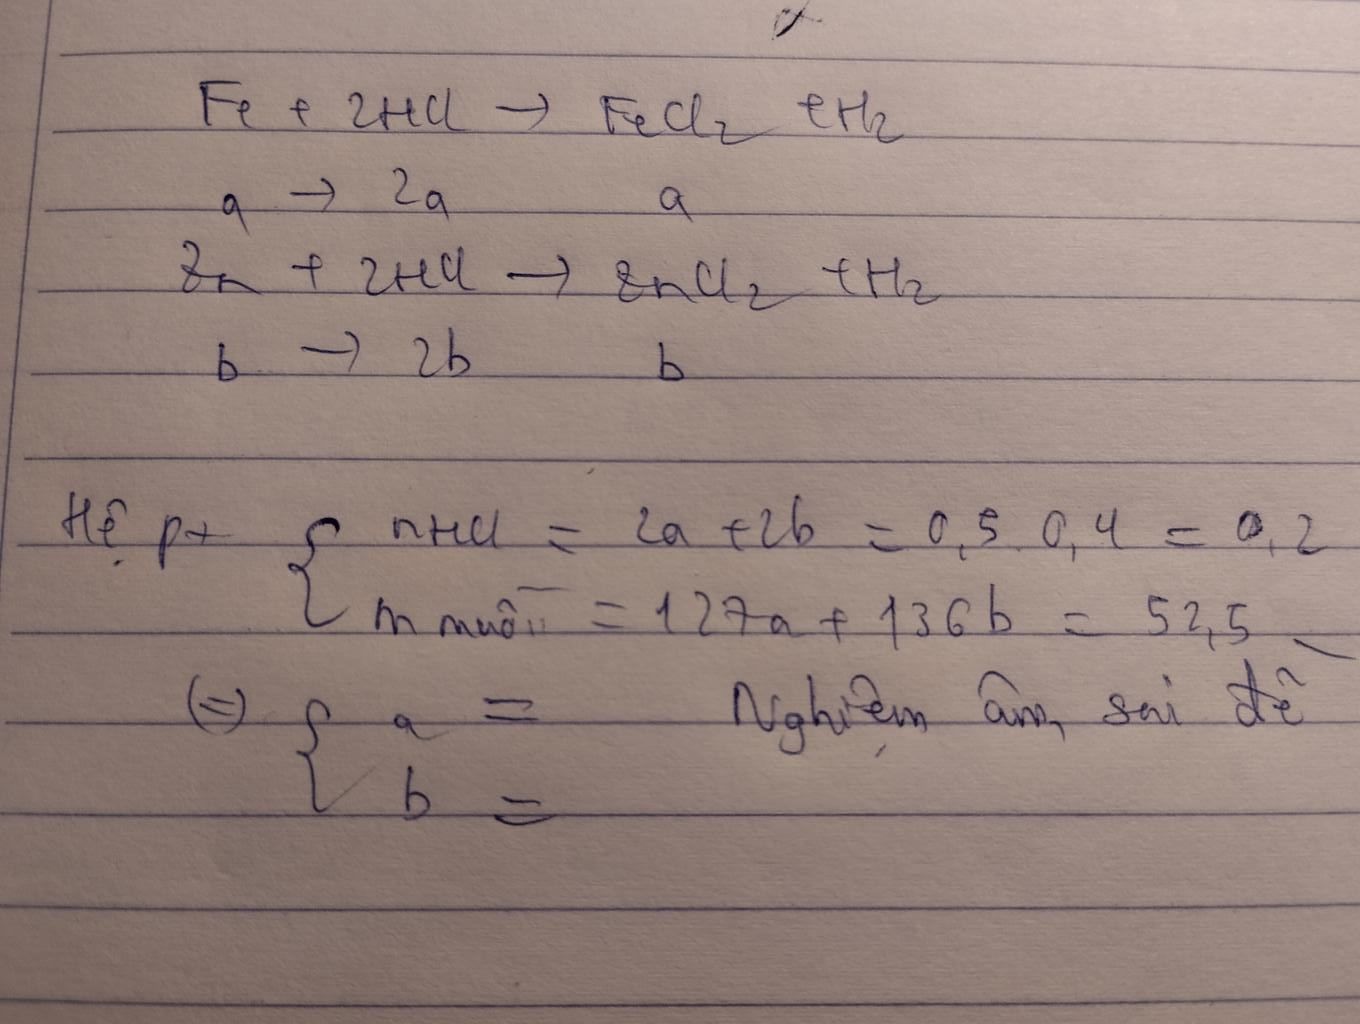 Fe + 2HCl → FeCl2 + H2
a → 2a a
Zn + 2HCl → ZnCl2 + H2
b → 2b b
Hệ pt { nHCl = 2a + 2b = 0,5. 0,4 = 0,2
m muối = 127a + 136b = 52,5
(=) { a = Nghiệm âm, sai đề
b =